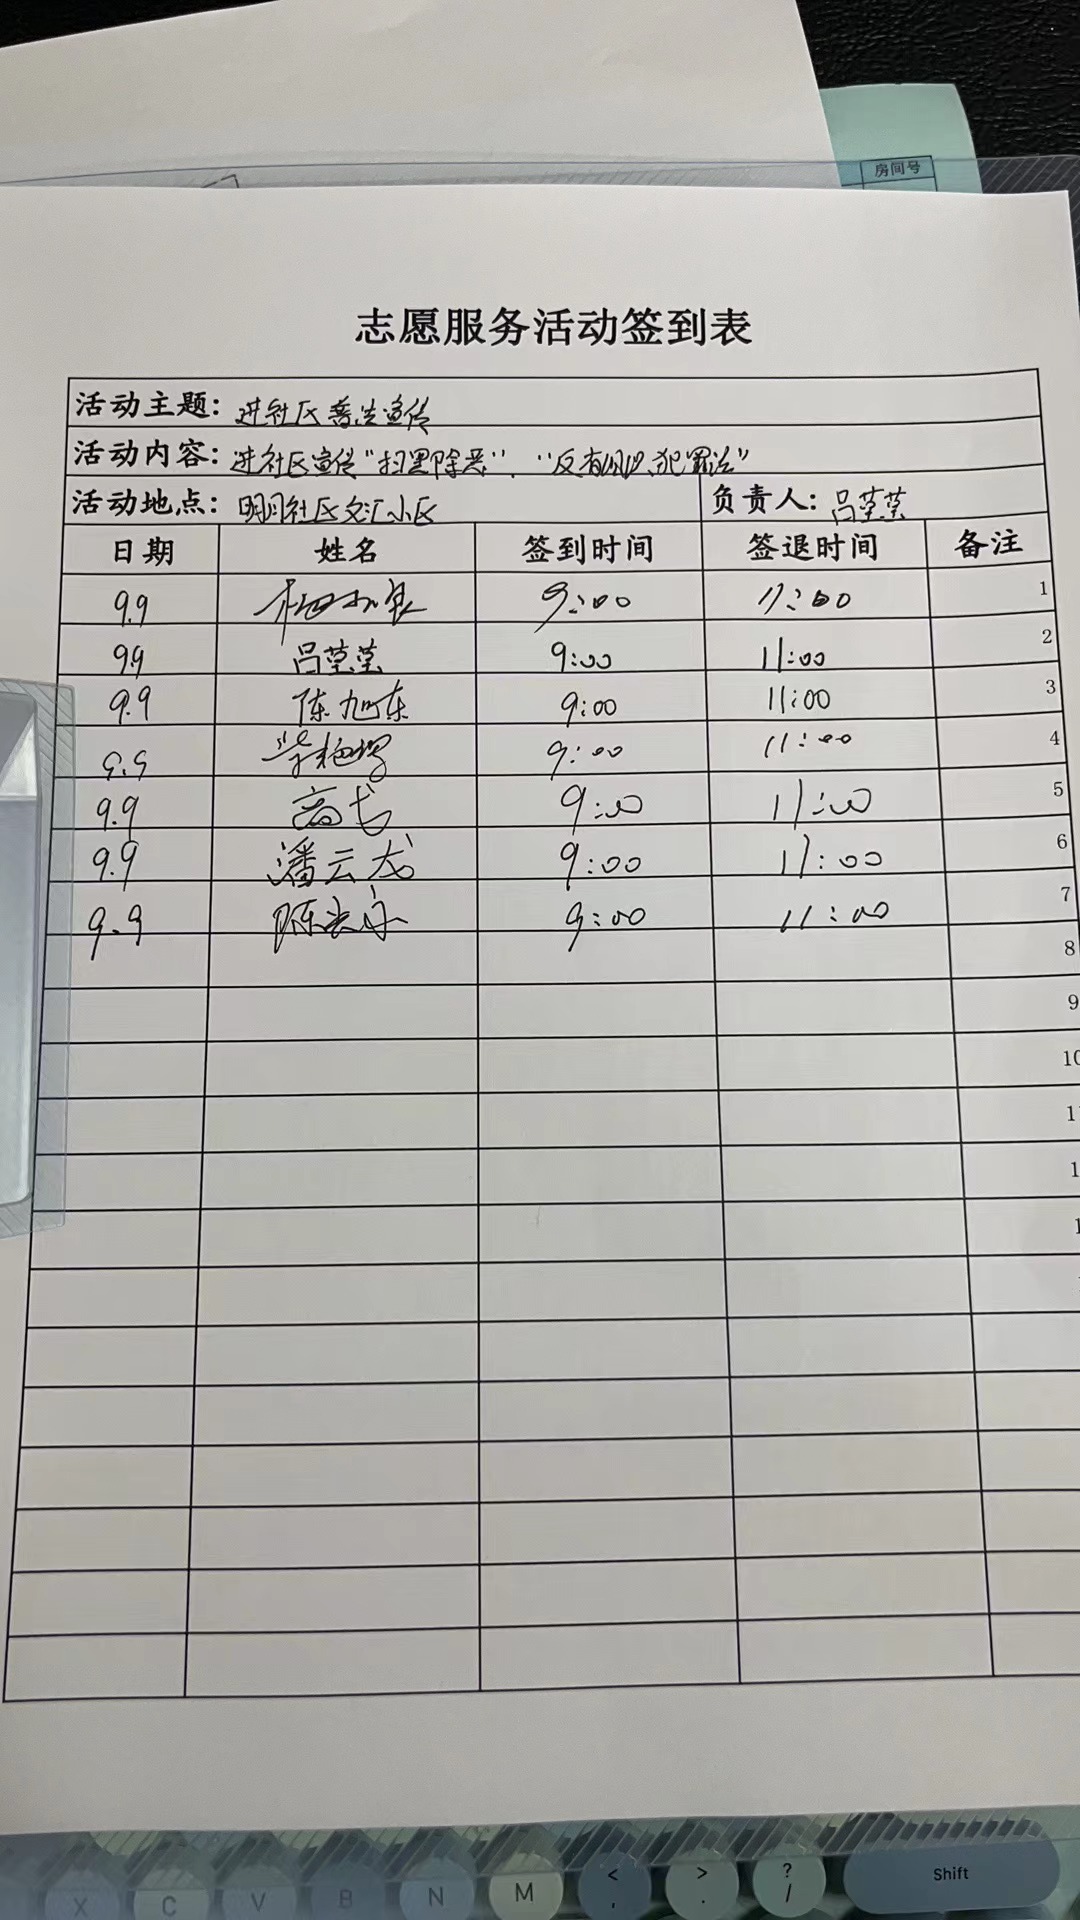 房间号
志愿服务活动签到表
活动主题: 进社区普法宣传
活动内容: 进社区宣传“扫黑除恶”、“反有组织犯罪法”
活动地点: 明月社区文汇小区 负责人: 吕莹莹
日期 姓名 签到时间 签退时间 备注
9.9 9:00 11:00 1
9.9 吕莹莹 9:00 11:00 2
9.9 陈旭东 9:00 11:00 3
9.9 9:00 11:00 4
9.9 9:00 11:00 5
9.9 潘云龙 9:00 11:00 6
9.9 陈 9:00 11:00 7
8
9
10
X C V B N M < , > . ? / Shift